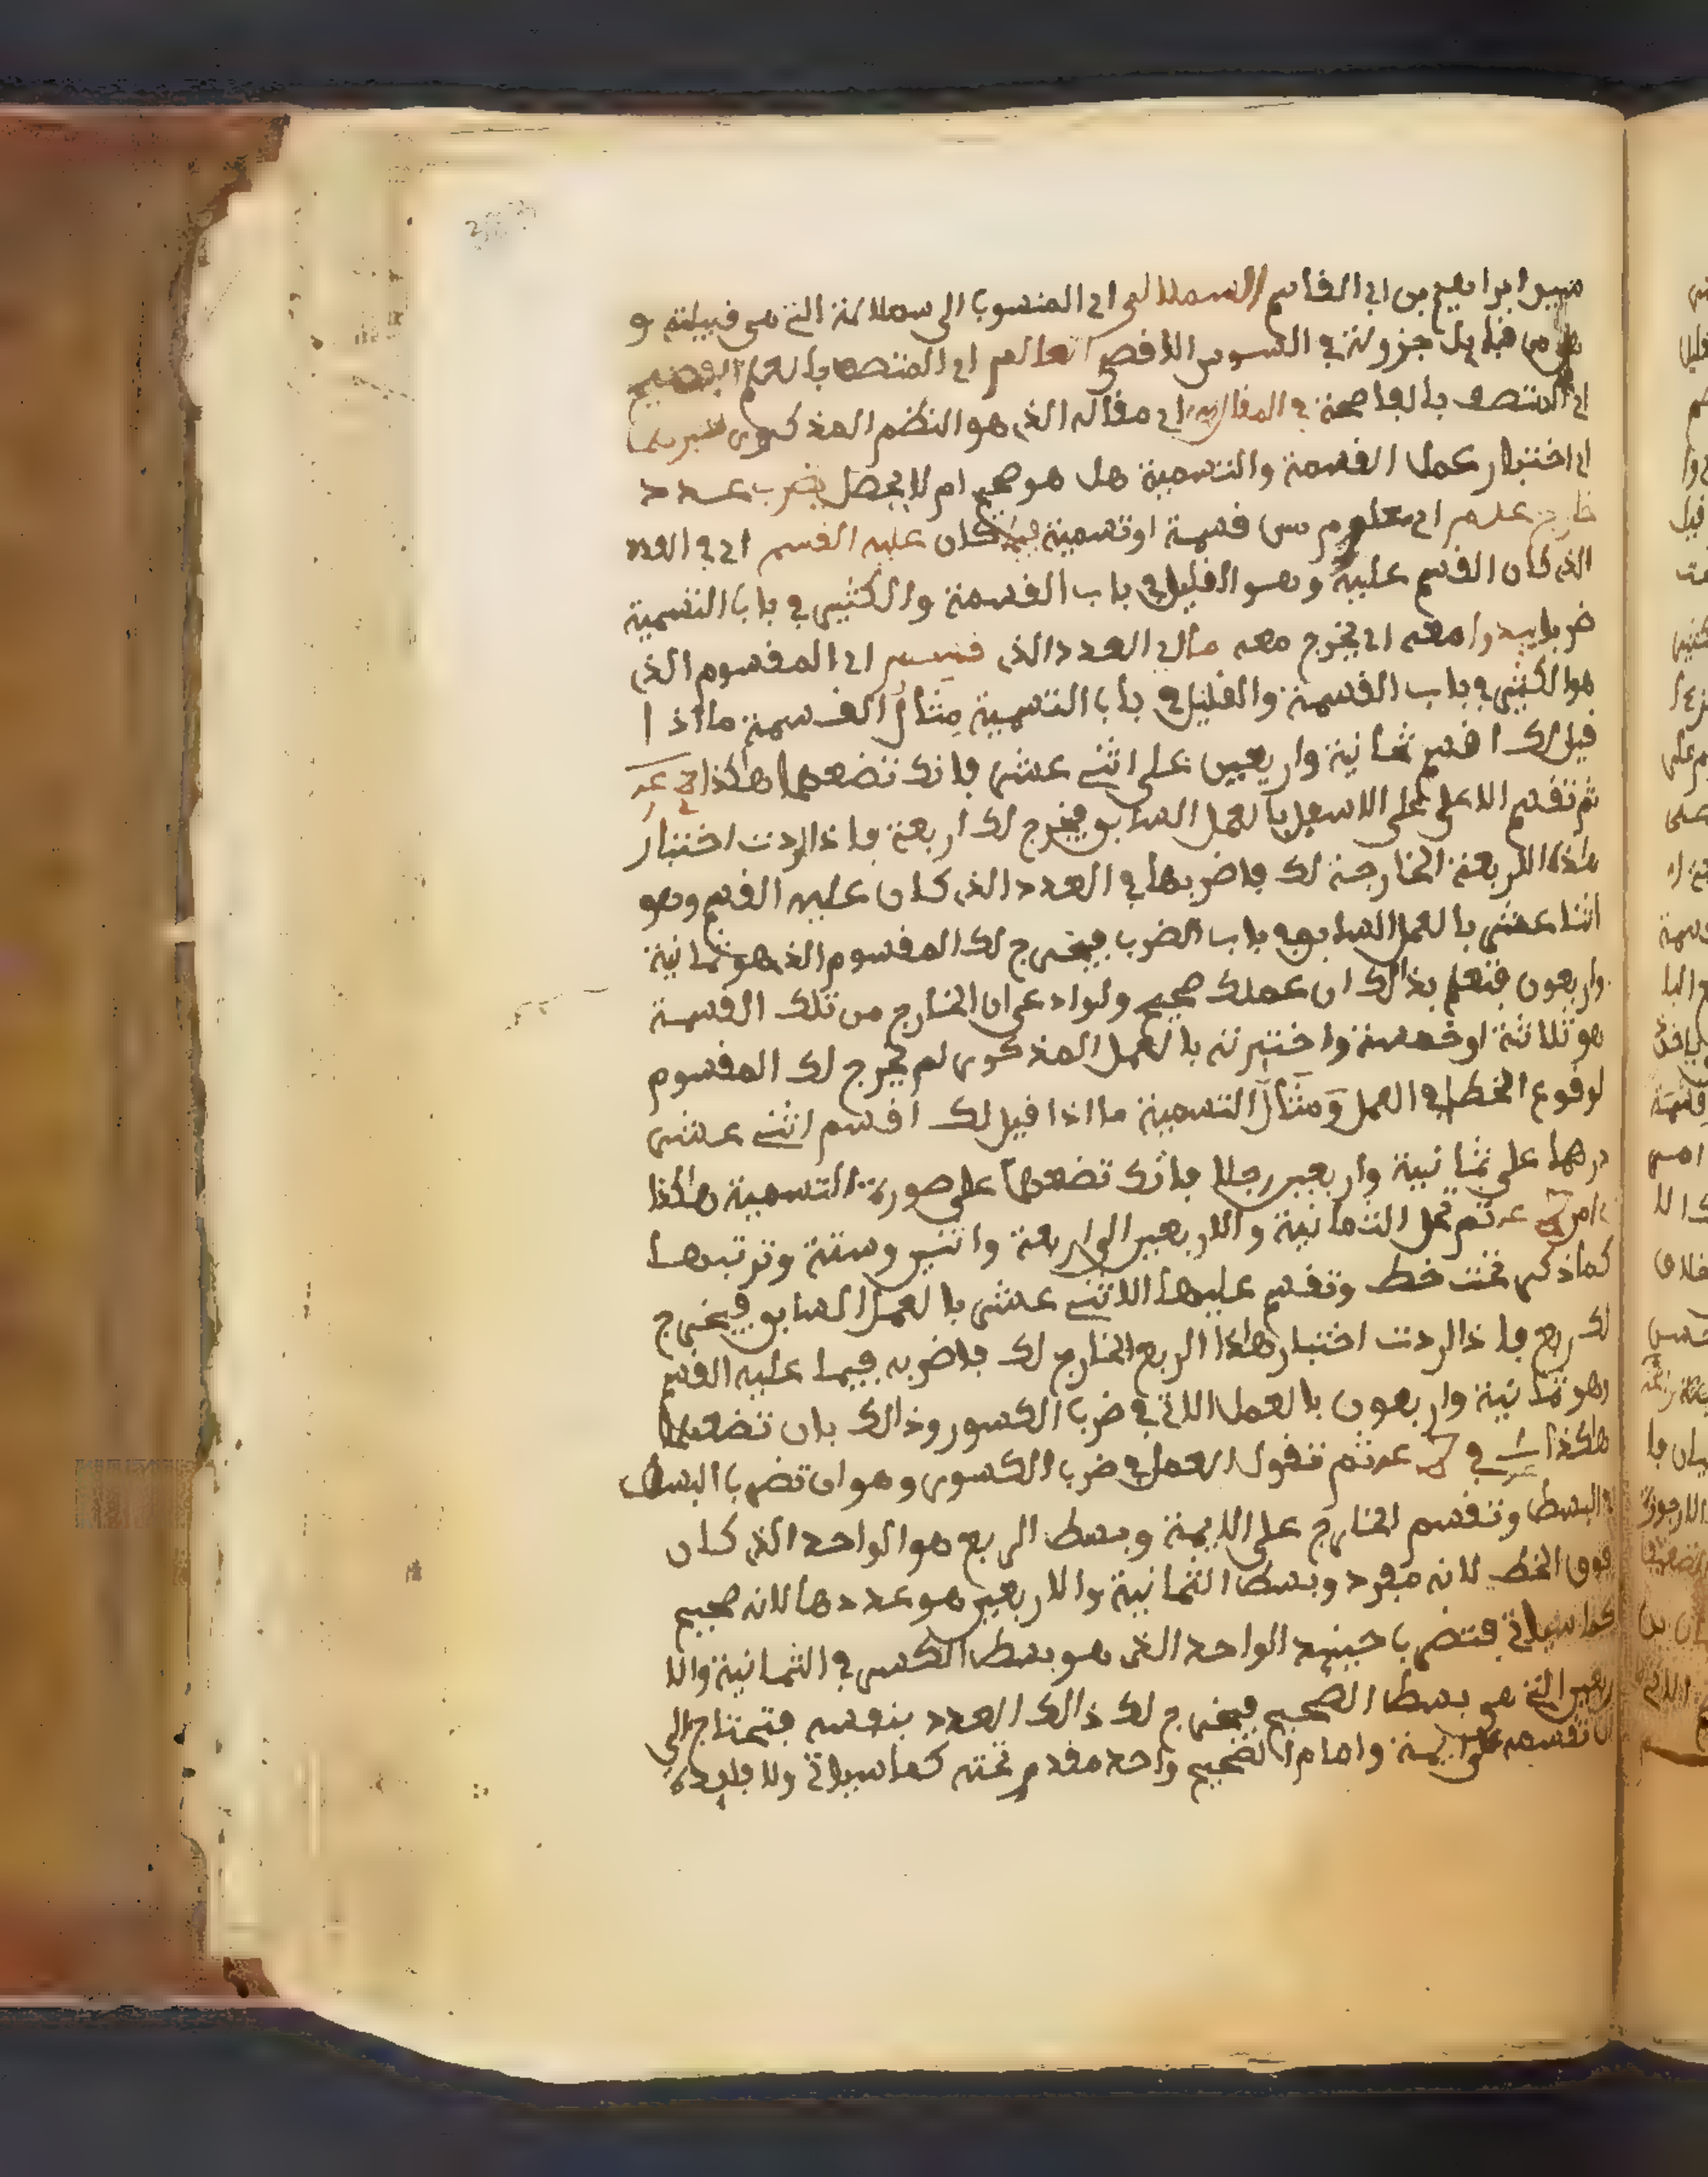 ابراهيم بن ابى القاسم السملالى اى المنسوب الى سملالة التى هى قبيلته و
من قبايل جزولة فى السوس الاقصى العالم اى المتصف بالعلم الفصيح
اى المتصف بالفصاحة فى المقالة اى مقاله الذى هو النظم المذكور
اى اختبار عمل القسمة والتسمية هل هو صحيح ام لا يحصل بضرب عدد
خارج علم اى معلوم من قسمة او تسمية فيما كان عليه القسم اى فى العدد
الذى كان القسم عليه وهو القليل فى باب القسمة والكثير فى باب التسمية
ضربا معه اى يخرج معه مال العدد الذى قسم اى المقسوم الذى
هو الكثير فى باب القسمة والقليل فى باب التسمية مثال القسمة ما اذا
قيل لك اقسم ثمانية واربعين على اثنى عشر فانك تضعهما هكذا
ثم تقسم الاعلى على الاسفل بالعمل السابق فيخرج لك اربعة فاذا اردت اختبار
هذه الاربعة الخارجة لك فاضربها فى العدد الذى كان عليه القسم وهو
اثنا عشر بالعمل السابق فى باب الضرب فيخرج لك المقسوم الذى هو ثمانية
واربعون فتعلم بذالك ان عملك صحيح ولو ادعى ان الخارج من تلك القسمة
هو ثلاثة او خمسة واختبرته بالعمل المذكور لم يخرج لك المقسوم
لوقوع الخطإ فى العمل ومثال التسمية ما اذا قيل لك اقسم اثنى عشر
درهما على ثمانية واربعين رجلا فانك تضعهما على صورة التسمية هاكذا
ثم تحل الثمانية والاربعين الى اربعة واثنين وستة وترتبها
كما ذكر تحت خط وتقسم عليها الاثنى عشر بالعمل السابق فيخرج
لك ربع فاذا اردت اختبار هاذا الربع الخارج لك فاضربه فيما عليه القسم
وهو ثمانية واربعون بالعمل الاتى فى ضرب الكسور وذالك بان تضعهما
هاكذا فى ثم تقول العمل فى ضرب الكسور وهو ان تضرب البسط
فى البسط وتقسم الخارج على الايمة وبسط الربع هو الواحد الذى كان
فوق الخط لانه مفرد وبسط الثمانية والاربعين هو عددها لانه صحيح
كما سياتى فتضرب حينئد الواحد الذى هو بسط الكسر فى الثمانية والا
ربعين التى هى بسط الصحيح فيخرج لك ذالك العدد بنفسه فتحتاج الى
ان تقسمه على الايمة وامام الصحيح واحد مقدم تحته كما سياتى ولا فايدة